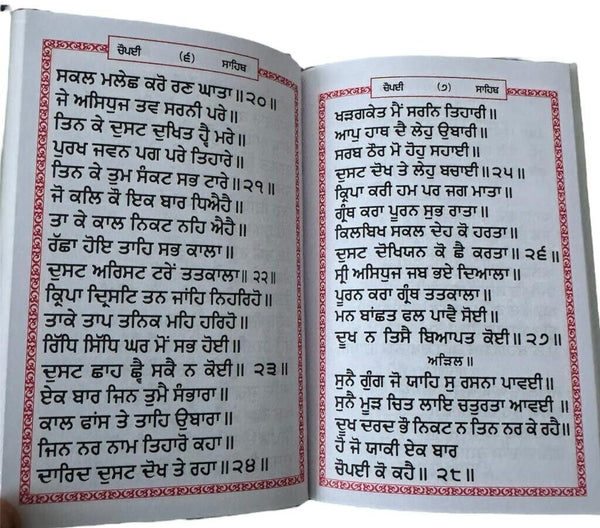 ਚੌਪਈ (੬) ਸਾਹਿਬ
ਸਕਲ ਮਲੇਛ ਕਰੋ ਰਣ ਘਾਤਾ॥੨੦॥
ਜੇ ਅਸਿਧੁਜ ਤਵ ਸਰਨੀ ਪਰੇ॥
ਤਿਨ ਕੇ ਦੁਸਟ ਦੁਖਿਤ ਹ੍ਵੈ ਮਰੇ॥
ਪੁਰਖ ਜਵਨ ਪਗ ਪਰੇ ਤਿਹਾਰੇ॥
ਤਿਨ ਕੇ ਤੁਮ ਸੰਕਟ ਸਭ ਟਾਰੇ॥੨੧॥
ਜੋ ਕਲਿ ਕੌ ਇਕ ਬਾਰ ਧਿਐਹੈ॥
ਤਾ ਕੇ ਕਾਲ ਨਿਕਟ ਨਹਿ ਐਹੈ॥
ਰੱਛਾ ਹੋਇ ਤਾਹਿ ਸਭ ਕਾਲਾ॥
ਦੁਸਟ ਅਰਿਸਟ ਟਰੇਂ ਤਤਕਾਲਾ॥੨੨॥
ਕ੍ਰਿਪਾ ਦ੍ਰਿਸਟਿ ਤਨ ਜਾਂਹਿ ਨਿਹਰਿਹੋ॥
ਤਾਕੇ ਤਾਪ ਤਨਿਕ ਮਹਿ ਹਰਿਹੋ॥
ਰਿੱਧਿ ਸਿੱਧਿ ਘਰ ਮੋਂ ਸਭ ਹੋਈ॥
ਦੁਸਟ ਛਾਹ ਛ੍ਵੈ ਸਕੈ ਨ ਕੋਈ॥ ੨੩॥
ਏਕ ਬਾਰ ਜਿਨ ਤੁਮੈ ਸੰਭਾਰਾ॥
ਕਾਲ ਫਾਂਸ ਤੇ ਤਾਹਿ ਉਬਾਰਾ॥
ਜਿਨ ਨਰ ਨਾਮ ਤਿਹਾਰੋ ਕਹਾ॥
ਦਾਰਿਦ ਦੁਸਟ ਦੋਖ ਤੇ ਰਹਾ॥੨੪॥
ਚੌਪਈ (੭) ਸਾਹਿਬ
ਖੜਗਕੇਤ ਮੈਂ ਸਰਨਿ ਤਿਹਾਰੀ॥
ਆਪੁ ਹਾਥ ਦੈ ਲੇਹੁ ਉਬਾਰੀ॥
ਸਰਬ ਠੌਰ ਮੋ ਹੋਹੁ ਸਹਾਈ॥
ਦੁਸਟ ਦੋਖ ਤੇ ਲੇਹੁ ਬਚਾਈ॥੨੫॥
ਕ੍ਰਿਪਾ ਕਰੀ ਹਮ ਪਰ ਜਗ ਮਾਤਾ॥
ਗ੍ਰੰਥ ਕਰਾ ਪੂਰਨ ਸੁਭ ਰਾਤਾ॥
ਕਿਲਬਿਖ ਸਕਲ ਦੇਹ ਕੋ ਹਰਤਾ॥
ਦੁਸਟ ਦੋਖਿਯਨ ਕੋ ਛੈ ਕਰਤਾ॥ ੨੬॥
ਸ੍ਰੀ ਅਸਿਧੁਜ ਜਬ ਭਏ ਦਿਆਲਾ॥
ਪੂਰਨ ਕਰਾ ਗ੍ਰੰਥ ਤਤਕਾਲਾ॥
ਮਨ ਬਾਂਛਤ ਫਲ ਪਾਵੈ ਸੋਈ॥
ਦੂਖ ਨ ਤਿਸੈ ਬਿਆਪਤ ਕੋਈ॥੨੭॥
ਅੜਿਲ॥
ਸੁਨੈ ਗੁੰਗ ਜੋ ਯਾਹਿ ਸੁ ਰਸਨਾ ਪਾਵਈ॥
ਸੁਨੈ ਮੂੜ ਚਿਤ ਲਾਇ ਚਤੁਰਤਾ ਆਵਈ॥
ਦੂਖ ਦਰਦ ਭੌ ਨਿਕਟ ਨ ਤਿਨ ਨਰ ਕੇ ਰਹੈ॥
ਹੋ ਜੋ ਯਾਕੀ ਏਕ ਬਾਰ
ਚੌਪਈ ਕੋ ਕਹੈ॥ ੨੮॥